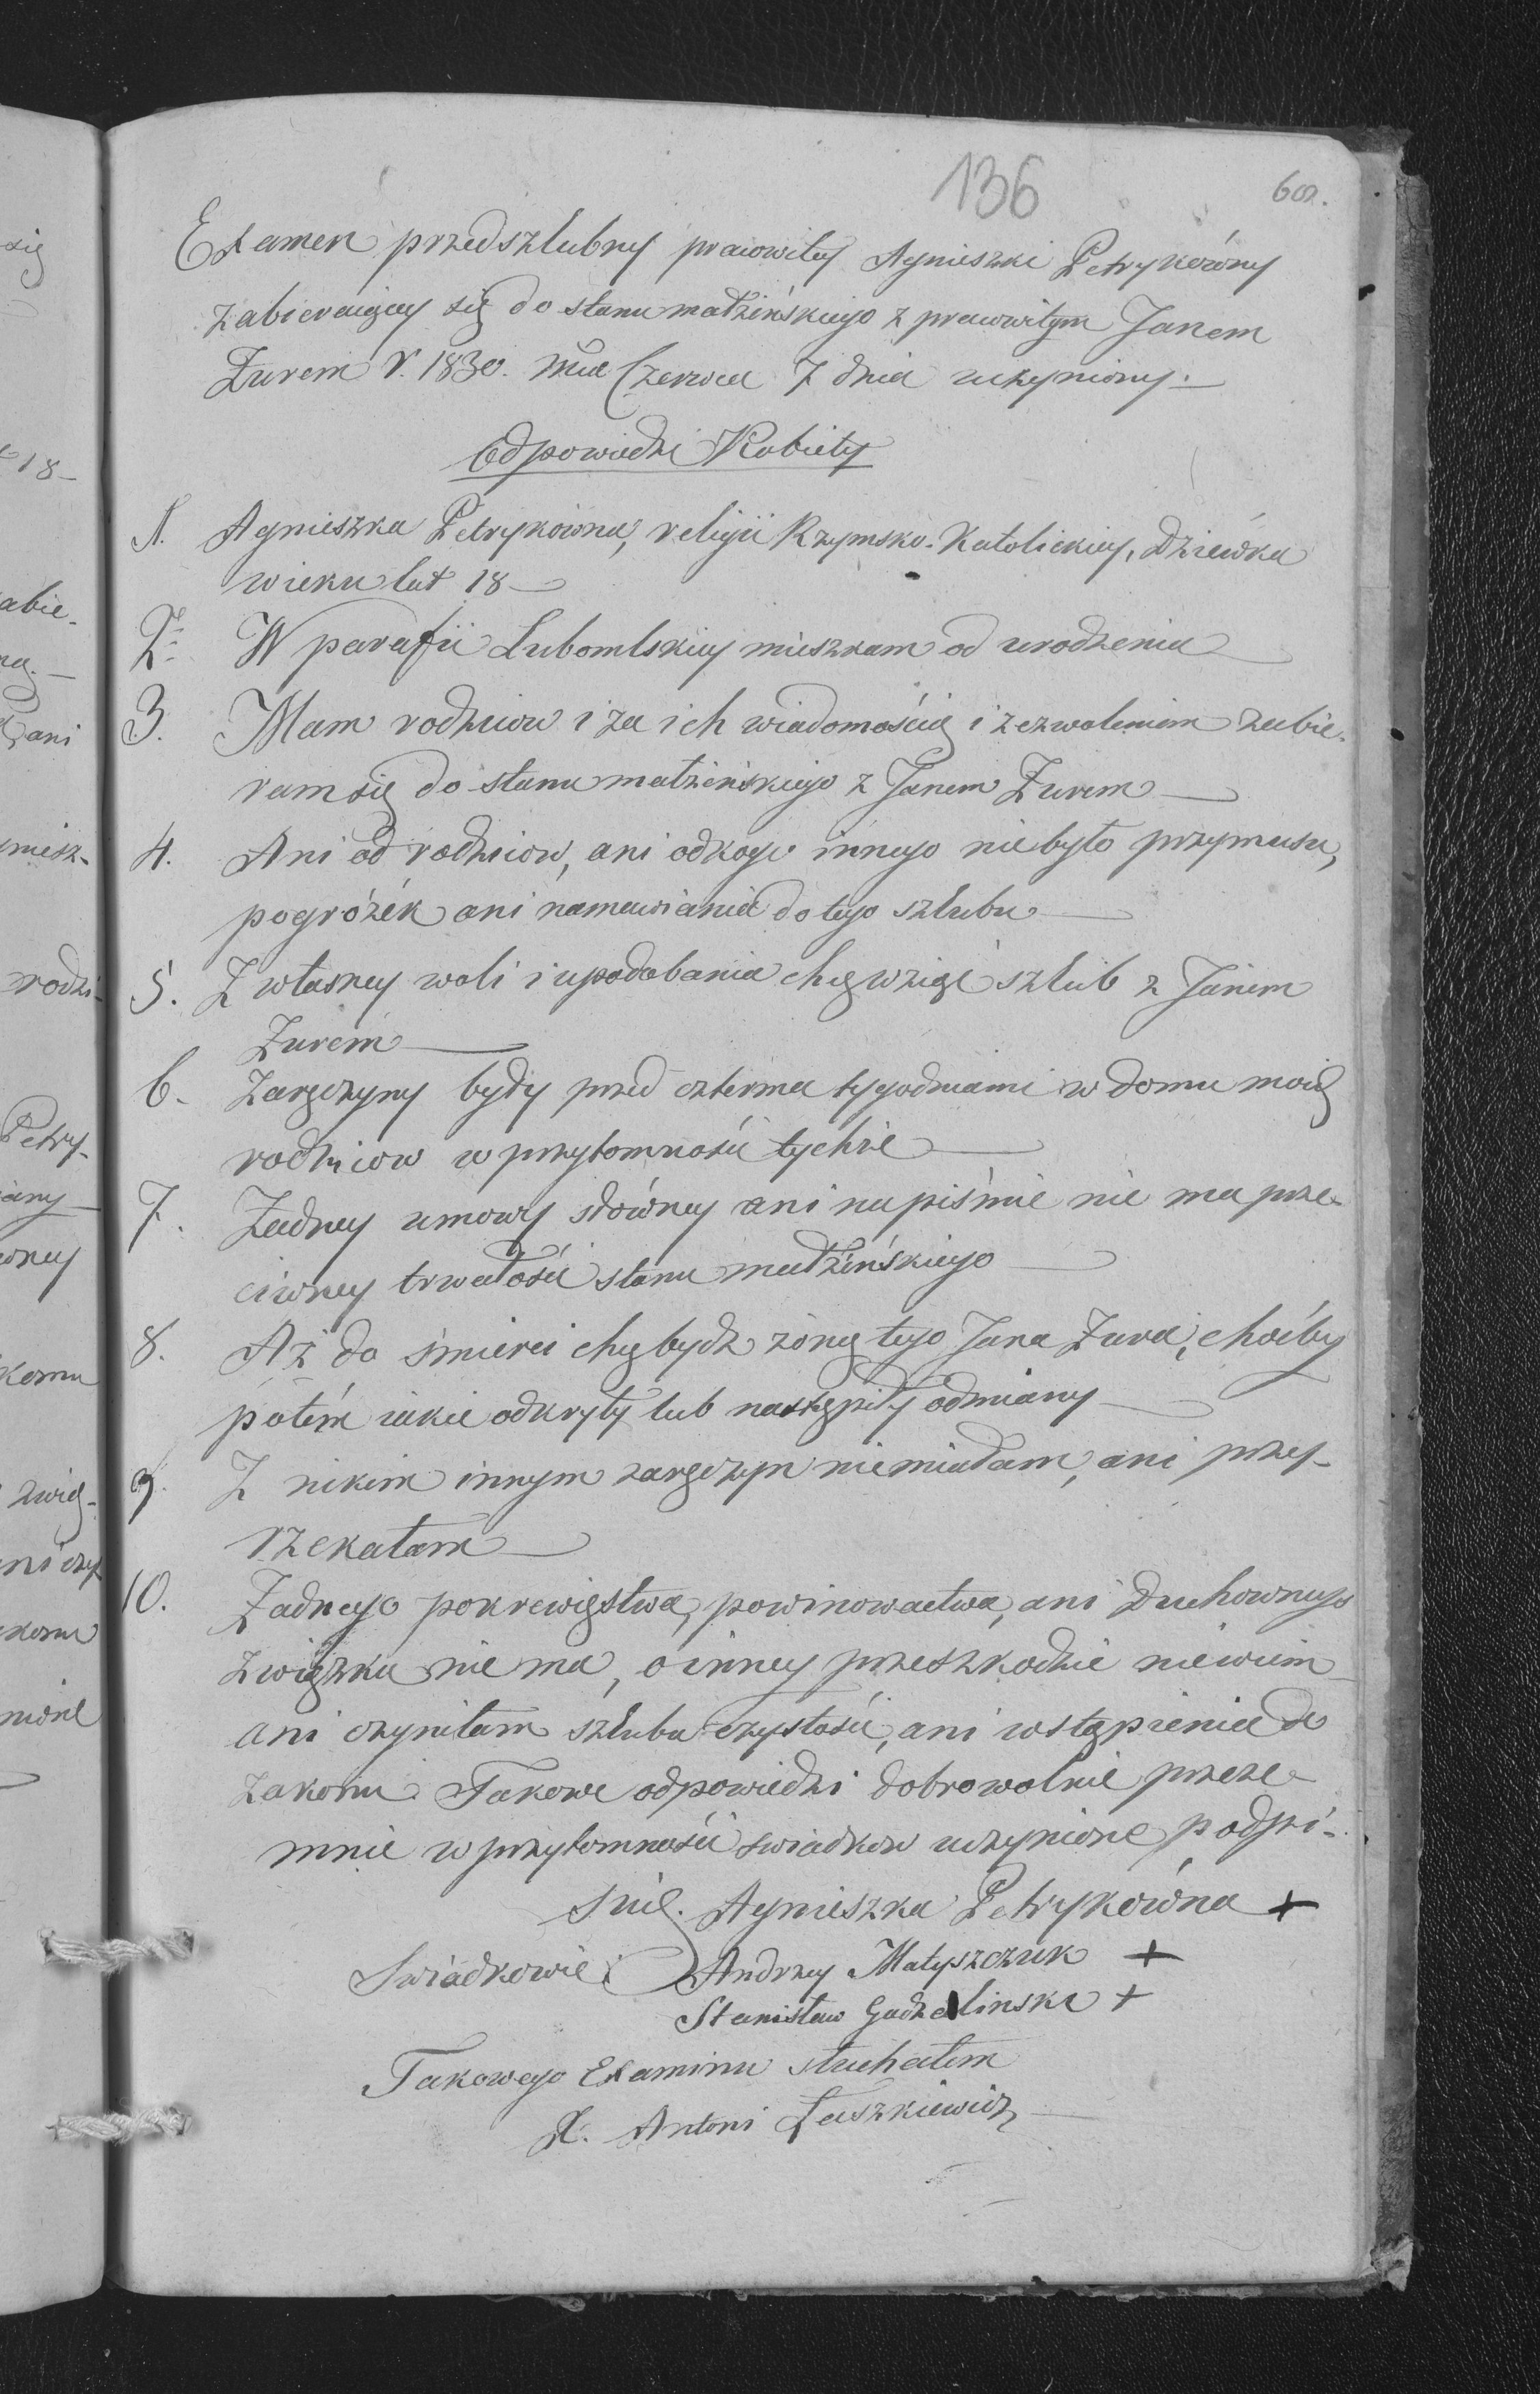 136
602.
Examen przedszlubny pracowitey Agnieszki Petrykówny
zabieraiącey się do stanu małżeńskiego z pracowitym Janem
Żurem r. 1830. mca Czerwca 7 dnia uczyniony.
Odpowiedzi Kobiety
1. Agnieszka Petrykówna, religii Rzymsko-Katolickiey, Dziewka
wieku lat 18
2. W parafii Lubomlskiey mieszkam od urodzenia
3. Mam rodziców i za ich wiadomością i zezwoleniem zabie-
ram się do stanu małżeńskiego z Janem Żurem
4. Ani od rodziców, ani od kogo innego nie było przymusu,
pogróżek ani namawiania do tego szlubu
5. Z własney woli i upodobania chcę wziąć szlub z Janem
Żurem
6. Zaręczyny były przed czterma tygodniami w domu moich
rodziców w przytomności tychże
7. Żadney umowy słówney ani na piśmie nie ma prze-
ciwney trwałości stanu małżeńskiego
8. Aż do śmierci chcę bydź żoną tego Jana Żura, choćby
potém iakie odkryły lub nastąpiły odmiany
9. Z nikim innym zaręczyn nie miałam, ani przy-
rzekałam
10. Żadnego pokrewieństwa, powinowactwa, ani Duchownego
związku nie ma, o inney przeszkodzie nie wiem
ani czyniłam szlubu czystości, ani wstąpienia do
zakonu. Takowe odpowiedzi dobrowolnie przeze-
mnie w przytomności swiadkow uczynione podpi-
suię. Agnieszka Petrykówna +
Swiadkowie: Andrzey Matyszczuk +
Stanisław Gadzalinski +
Takowego Examinu słuchałem
X. Antoni Łaszkiewicz